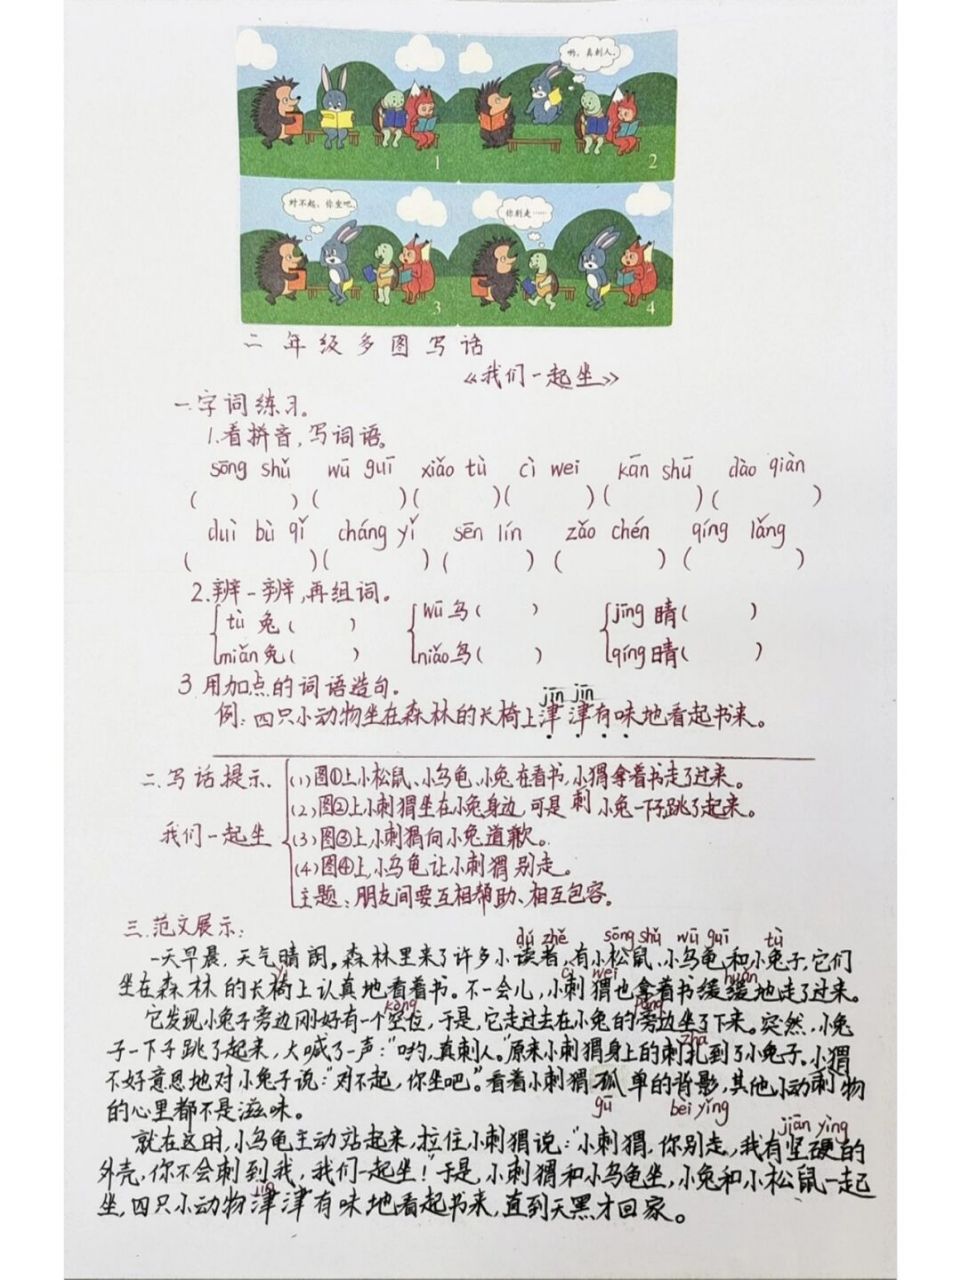 1
哟，真刺人。
2
对不起，你坐吧。
3
你别走……
4
二年级多图写话
《我们一起坐》
一.字词练习。
1.看拼音，写词语。
sōng shǔ wū guī xiǎo tù cì wei kān shū dào qiàn
( ) ( ) ( ) ( ) ( ) ( )
duì bù qǐ cháng yǐ sēn lín zǎo chén qíng lǎng
( ) ( ) ( ) ( ) ( )
2.辨一辨，再组词。
tù 兔( ) wū 乌( ) jīng 睛( )
miǎn 免( ) niǎo 鸟( ) qíng 晴( )
3.用加点的词语造句。
jīn jīn
例：四只小动物坐在森林的长椅上津津有味地看起书来。
二.写话提示.
我们一起坐
(1)图①上小松鼠、小乌龟、小兔在看书，小猬拿着书走了过来。
(2)图②上小刺猬坐在小兔身边，可是刺小兔一下子跳了起来。
(3)图③上，小刺猬向小兔道歉。
(4)图④上，小乌龟让小刺猬别走。
主题：朋友间要互相帮助、相互包容。
三.范文展示：
dú zhě sōng shǔ wū guī tù
一天早晨，天气晴朗，森林里来了许多小读者，有小松鼠、小乌龟和小兔子，它们
yǐ cì wei huǎn
坐在森林的长椅上认真地看着书。不一会儿，小刺猬也拿着书缓缓地走了过来。
kòng páng
它发现小兔子旁边刚好有一个空位，于是，它走过去在小兔的旁边坐了下来。突然，小兔
zhā
子一下子跳了起来，大喊了一声：“哟，真刺人。”原来小刺猬身上的刺扎到了小兔子。小猬
不好意思地对小兔子说：“对不起，你坐吧。”看着小刺猬孤单的背影，其他小动刺物
gū bei yǐng
的心里都不是滋味。
jiān yìng
就在这时，小乌龟主动站起来，拉住小刺猬说：“小刺猬，你别走，我有坚硬的
外壳，你不会刺到我，我们一起坐！”于是，小刺猬和小乌龟坐，小兔和小松鼠一起
jīn
坐，四只小动物津津有味地看起书来，直到天黑才回家。